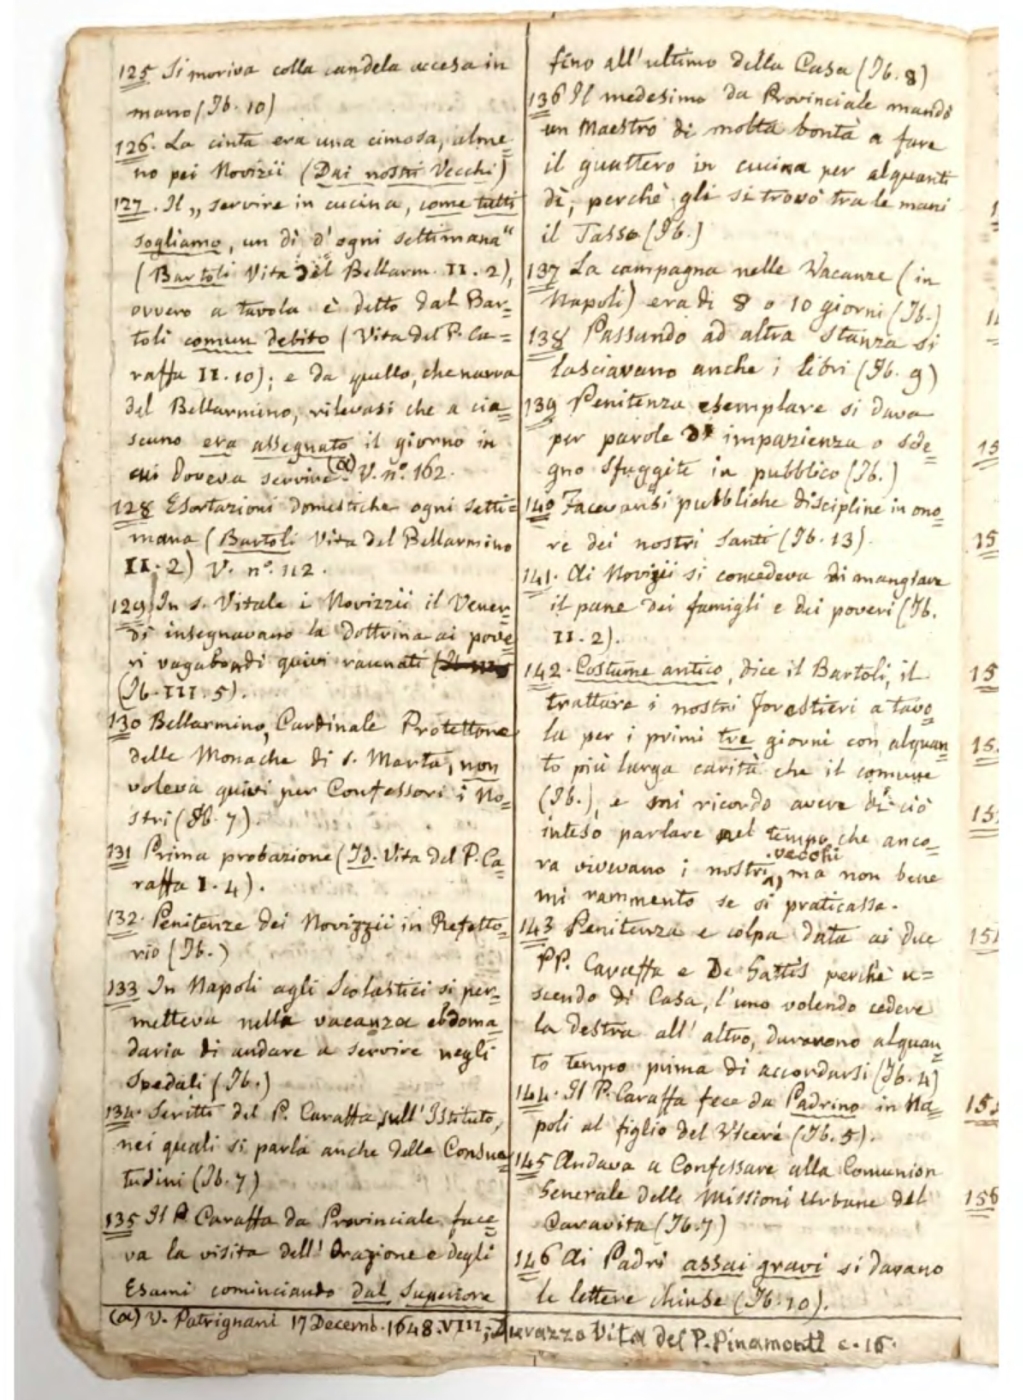 125 Si moriva colla candela accesa in
mano (Ib. 10)
126. La cinta era una cimosa, alme=
no pei Novizii (Dai nostri Vecchi)
127. Il „ servire in cucina, come tutti
sogliamo, un dì d'ogni settimana“
(Bartoli Vita del Bellarm. II. 2),
ovvero a tavola è detto dal Bar=
toli comun debito (Vita del P. Ca=
raffa II. 10); e da quello, che narra
del Bellarmino, rilevasi che a cia=
scuno era assegnato il giorno in
cui doveva servire (a) V. nº. 162.
128 Esortazioni domestiche ogni setti=
mana (Bartoli Vita del Bellarmino
II. 2) V. nº. 112.
129 In S. Vitale i Novizzii il Vener=
dì insegnavano la dottrina ai pove=
ri vagabondi quivi raunati
(Ib. III. 5).
130 Bellarmino, Cardinale Protettore
delle Monache di S. Marta, non
voleva quivi per Confessori i No=
stri (Ib. 7).
131 Prima probazione (Id. Vita del P. Ca=
raffa I. 4).
132. Penitenze dei Novizzii in Refetto=
rio (Ib.)
133 In Napoli agli Scolastici si per=
metteva nella vacanza ebdoma=
daria di andare a servire negli
Spedali (Ib.)
134. Scritti del P. Caraffa sull'Istituto,
nei quali si parla anche delle Consue=
tudini (Ib. 7)
135 Il P. Caraffa da Provinciale face=
va la visita dell'Orazione e degli
Esami cominciando dal Superiore
fino all'ultimo della Casa (Ib. 8)
136 Il medesimo da Provinciale mandò
un Maestro di molta bontà a fare
il guattero in cucina per alquanti
dì, perchè gli si trovò tra le mani
il Tasso (Ib.)
137 La campagna nelle Vacanze (in
Napoli) era di 8 o 10 giorni (Ib.)
138 Passando ad altra stanza si
lasciavano anche i libri (Ib. 9)
139 Penitenza esemplare si dava
per parole di impazienza o sde=
gno sfuggite in pubblico (Ib.)
140 Facevansi pubbliche discipline in ono=
re dei nostri Santi (Ib. 13).
141. Ai Novizii si concedeva di mangiare
il pane dei famigli e dei poveri (Ib.
II. 2).
142. Costume antico, dice il Bartoli, il
trattare i nostri Forestieri a tavo=
la per i primi tre giorni con alquan=
to più larga carità che il comune
(Ib.), e mi ricordo avere di ciò
inteso parlare nel tempo che anco=
ra vivevano i nostri vecchi, ma non bene
mi rammento se si praticasse.
143 Penitenza e colpa data ai due
PP. Caraffa e De Gattis perchè u=
scendo di Casa, l'uno volendo cedere
la destra all'altro, durarono alquan=
to tempo prima di accordarsi (Ib. 4)
144. Il P. Caraffa fece da Padrino in Na=
poli al figlio del Vicerè (Ib. 5).
145 Andava a Confessare alla Comunion
Generale delle Missioni Urbane del
Caravita (Ib. 7)
146 Ai Padri assai gravi si davano
le lettere chiuse (Ib. 10).
(a) V. Patrignani 17 Decemb. 1648. VIII; Durazzo Vita del P. Pinamonti c. 16.